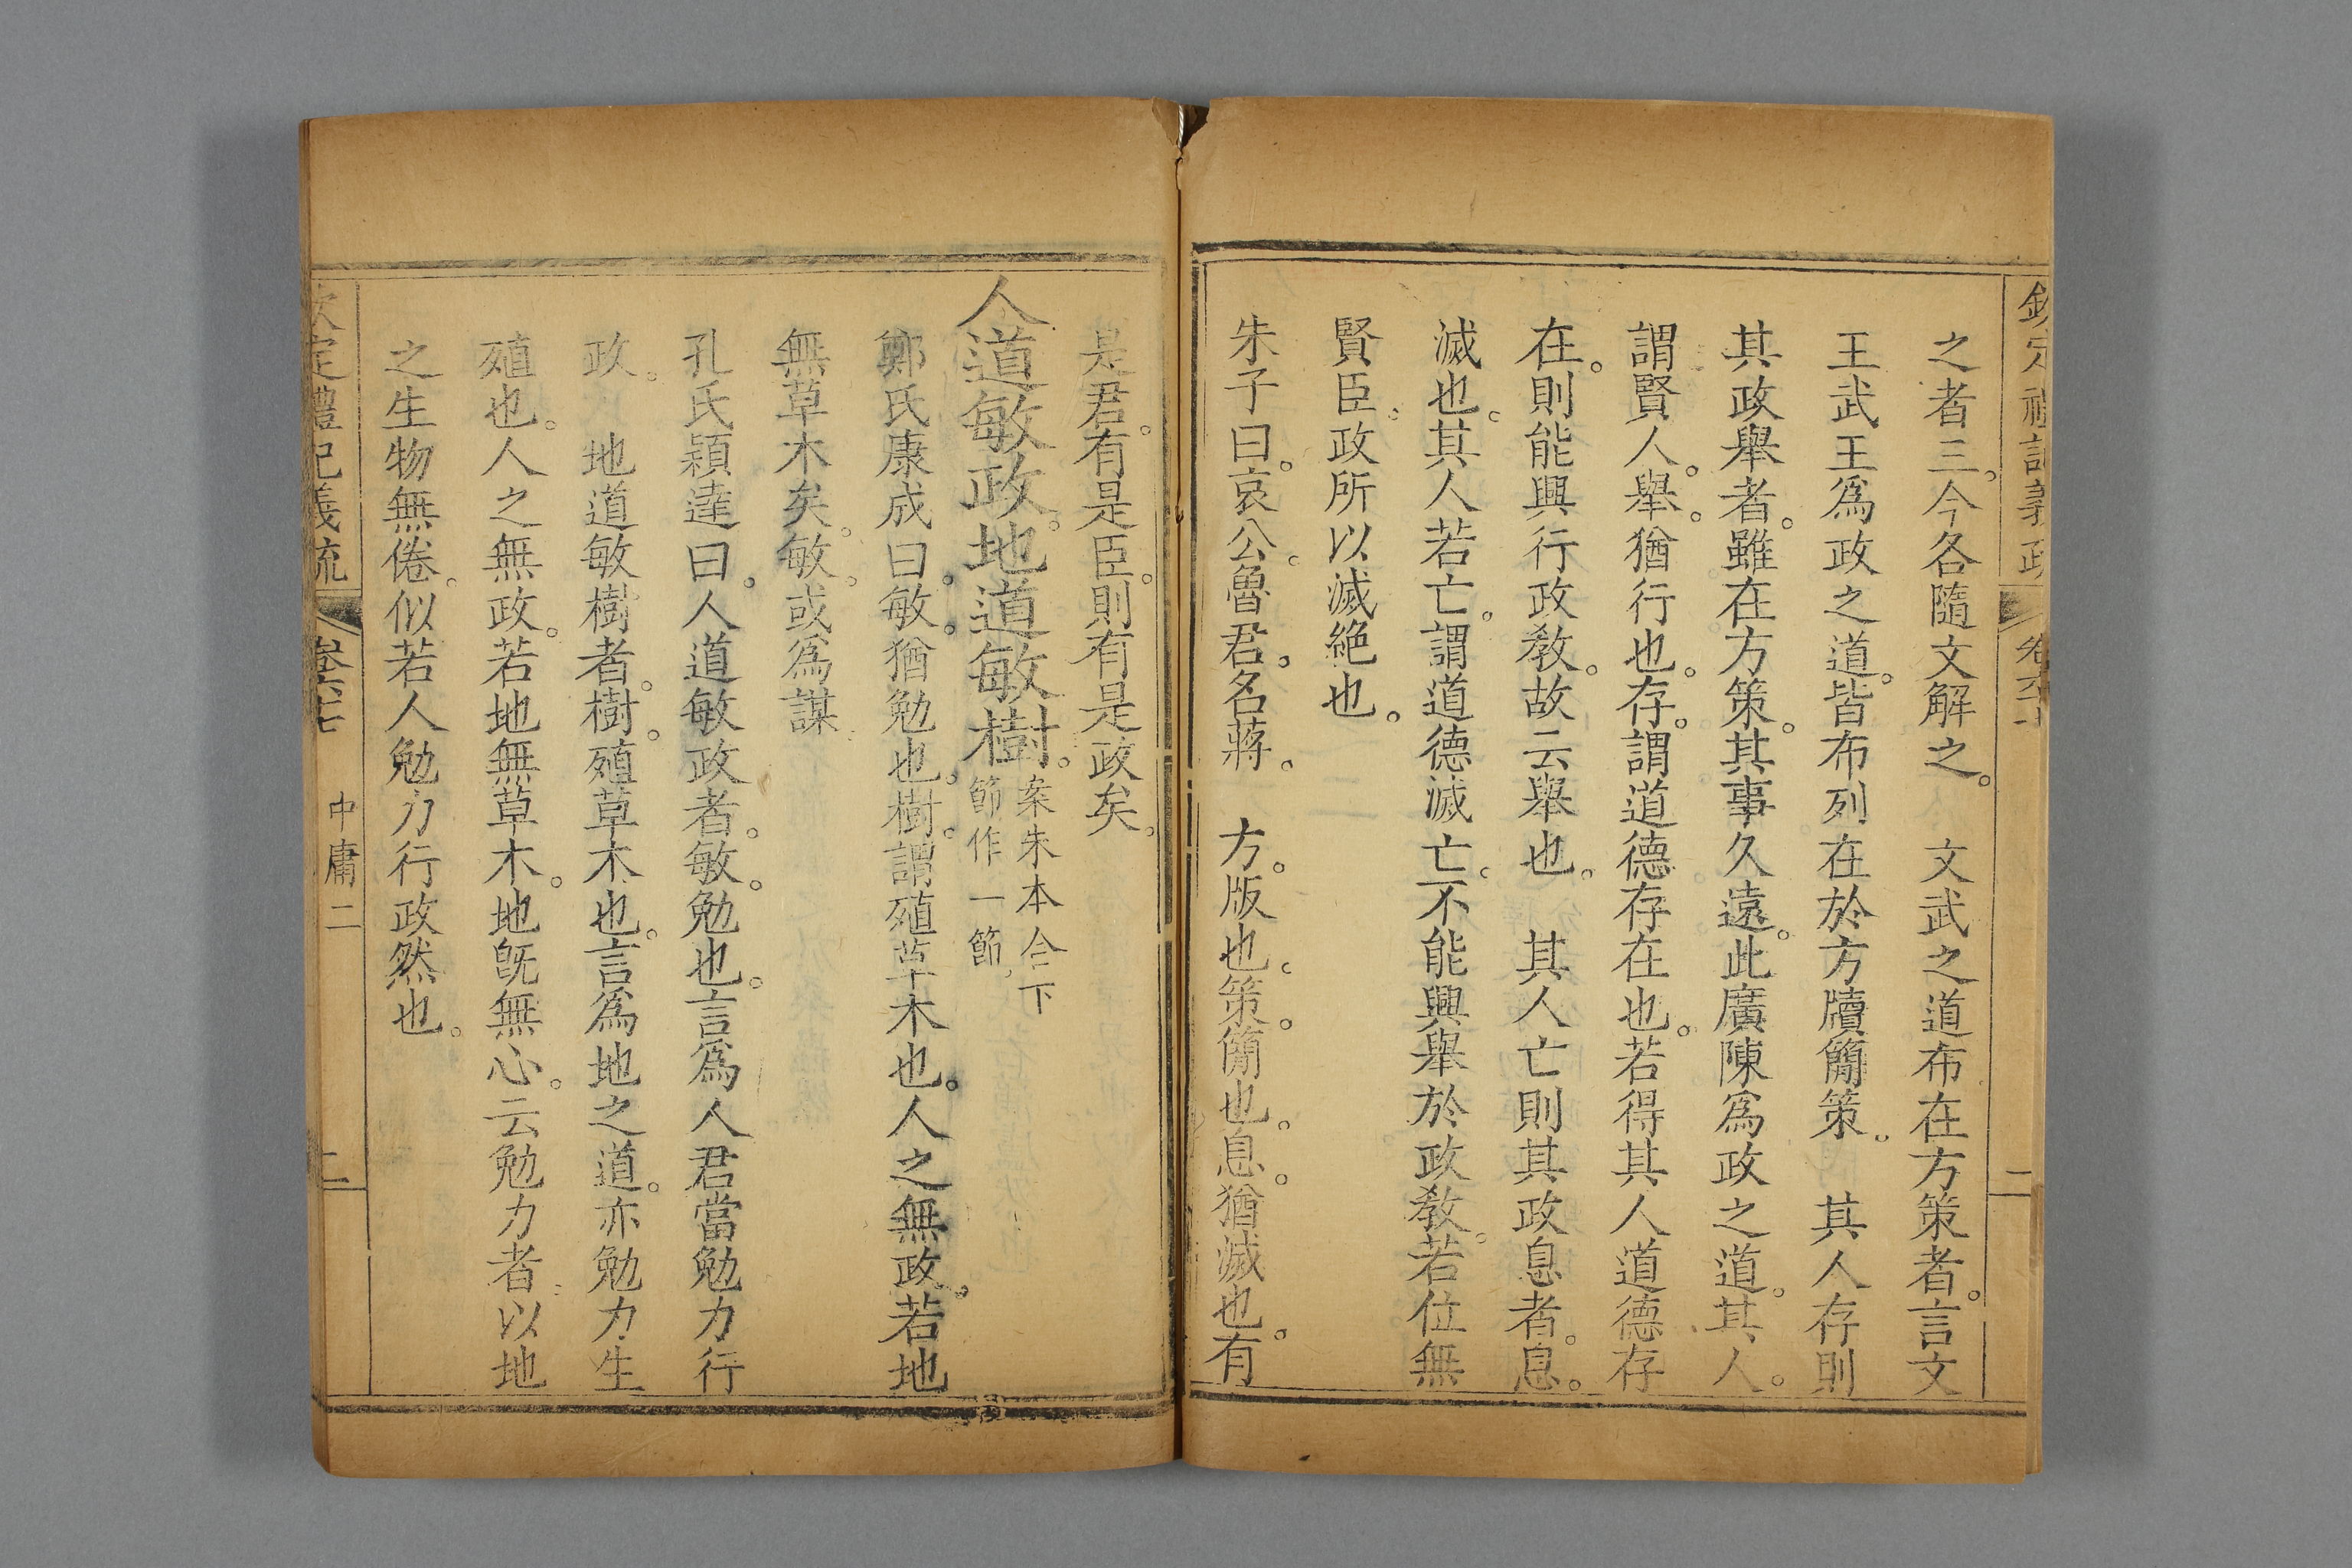 之者三。今各隨文解之。　文武之道布在方策者。言文
王武王爲政之道。皆布列在於方牘簡策。　其人存則
其政舉者。雖在方策。其事久遠。此廣陳爲政之道。其人。
謂賢人。舉。猶行也。存。謂道德存在也。若得其人道德存
在。則能興行政教。故云舉也。　其人亡則其政息者。息。
滅也。其人若亡。謂道德滅亡。不能興舉於政教。若位無
賢臣。政所以滅絕也。
朱子曰。哀公。魯君。名蔣。　方。版也。策。簡也。息。猶滅也。有
是君。有是臣。則有是政矣。
人道敏政。地道敏樹。
案朱本合下
節作一節。
鄭氏康成曰。敏。猶勉也。樹。謂殖草木也。人之無政。若地
無草木矣。敏。或爲謀。
孔氏穎達曰。人道敏政者。敏。勉也。言爲人君當勉力行
政。　地道敏樹者。樹。殖草木也。言爲地之道。亦勉力生
殖也。人之無政。若地無草木。地旣無心。云勉力者。以地
之生物無倦。似若人勉力行政然也。
欽定禮記義疏
卷六十七
中庸二
二